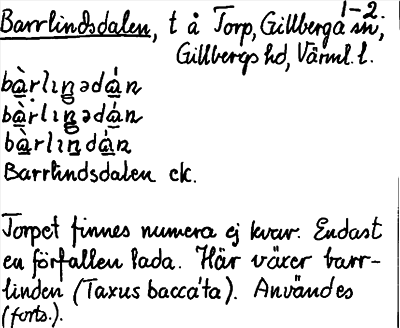 1-2.
Barrlindsdalen, t å Torp, Gillberga sn,
Gillbergs hd, Värml. l.
bàrlıŋədáņ
bàrlıŋədáņ
bàrlıŋdáņ
Barrlindsdalen ek.
Torpet finnes numera ej kvar. Endast
en förfallen lada. Här växer barr-
linden (Taxus baccáta). Användes
(forts.).